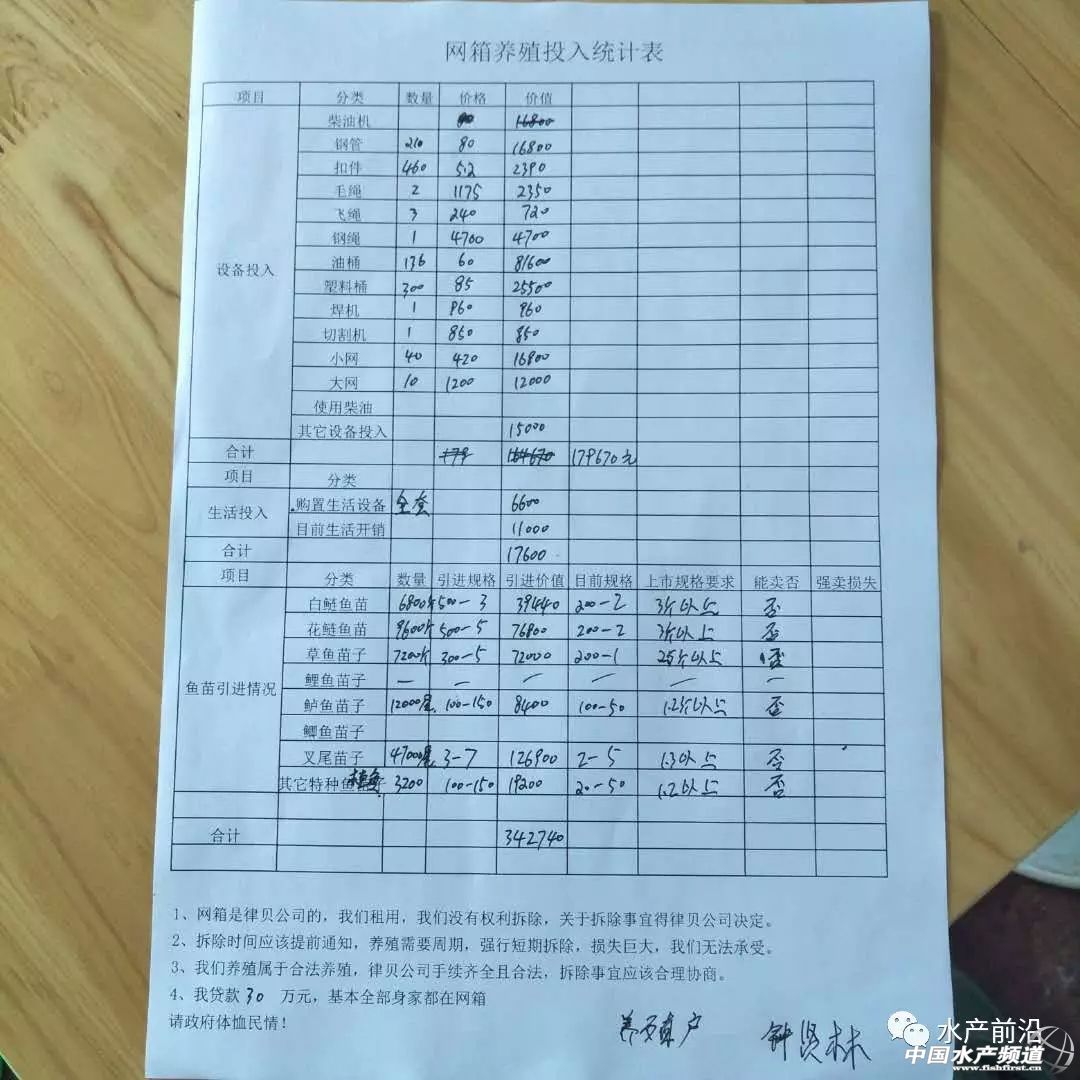 网箱养殖投入统计表
项目 分类 数量 价格 价值
柴油机 80 16800
钢管 210 80 16800
扣件 460 5.2 2390
毛绳 2 1175 2350
飞绳 3 240 720
钢绳 1 4700 4700
设备投入 油桶 136 60 81600
塑料桶 300 85 25500
焊机 1 860 860
切割机 1 850 850
小网 40 420 16800
大网 10 1200 12000
使用柴油
其它设备投入 15000
合计 179 164670 179670元
项目 分类
生活投入 购置生活设备 全套 6600
目前生活开销 11000
合计 17600
项目 分类 数量 引进规格 引进价值 目前规格 上市规格要求 能卖否 强卖损失
白鲢鱼苗 6800斤 500-3 39440 200-2 3斤以上 否
花鲢鱼苗 9600斤 500-5 76800 200-2 3斤以上 否
草鱼苗子 7200斤 300-5 72000 200-1 2.5斤以上 否
鱼苗引进情况 鲤鱼苗子 — — — — — —
鲈鱼苗子 12000尾 100-150 8400 100-50 1.2斤以上 否
鲫鱼苗子
叉尾苗子 4700尾 3-7 126900 2-5 1.3以上 否
其它特种鱼 3200 100-150 19200 20-50 1.2以上 否
合计 342740
1、网箱是律贝公司的，我们租用，我们没有权利拆除，关于拆除事宜得律贝公司决定。
2、拆除时间应该提前通知，养殖需要周期，强行短期拆除，损失巨大，我们无法承受。
3、我们养殖属于合法养殖，律贝公司手续齐全且合法，拆除事宜应该合理协商。
4、我贷款30 万元，基本全部身家都在网箱
请政府体恤民情！
养殖户 钟贤林
水产前沿
中国水产频道
www.fishfirst.cn